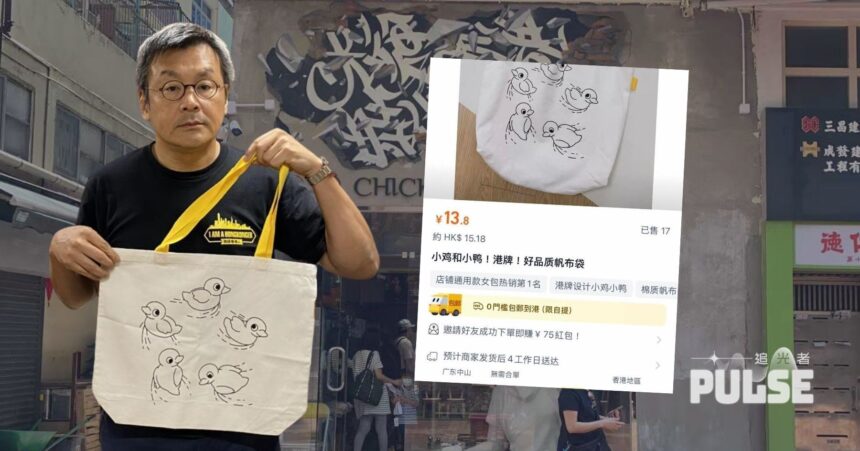 CHICK
I AM A HONGKONGER
¥13.8
已售 17
約 HK$ 15.18
小鸡和小鸭！港牌！好品质帆布袋
店铺通用款女包热销第1名
港牌设计小鸡小鸭
棉质帆布
包郵
0門檻包郵到港 (限自提)
邀請好友成功下單即賺￥75紅包！
预计商家发货后4工作日送达
广东中山
無需合單
香港地區
三昌建
成發建
工程有
追光者
PULSE